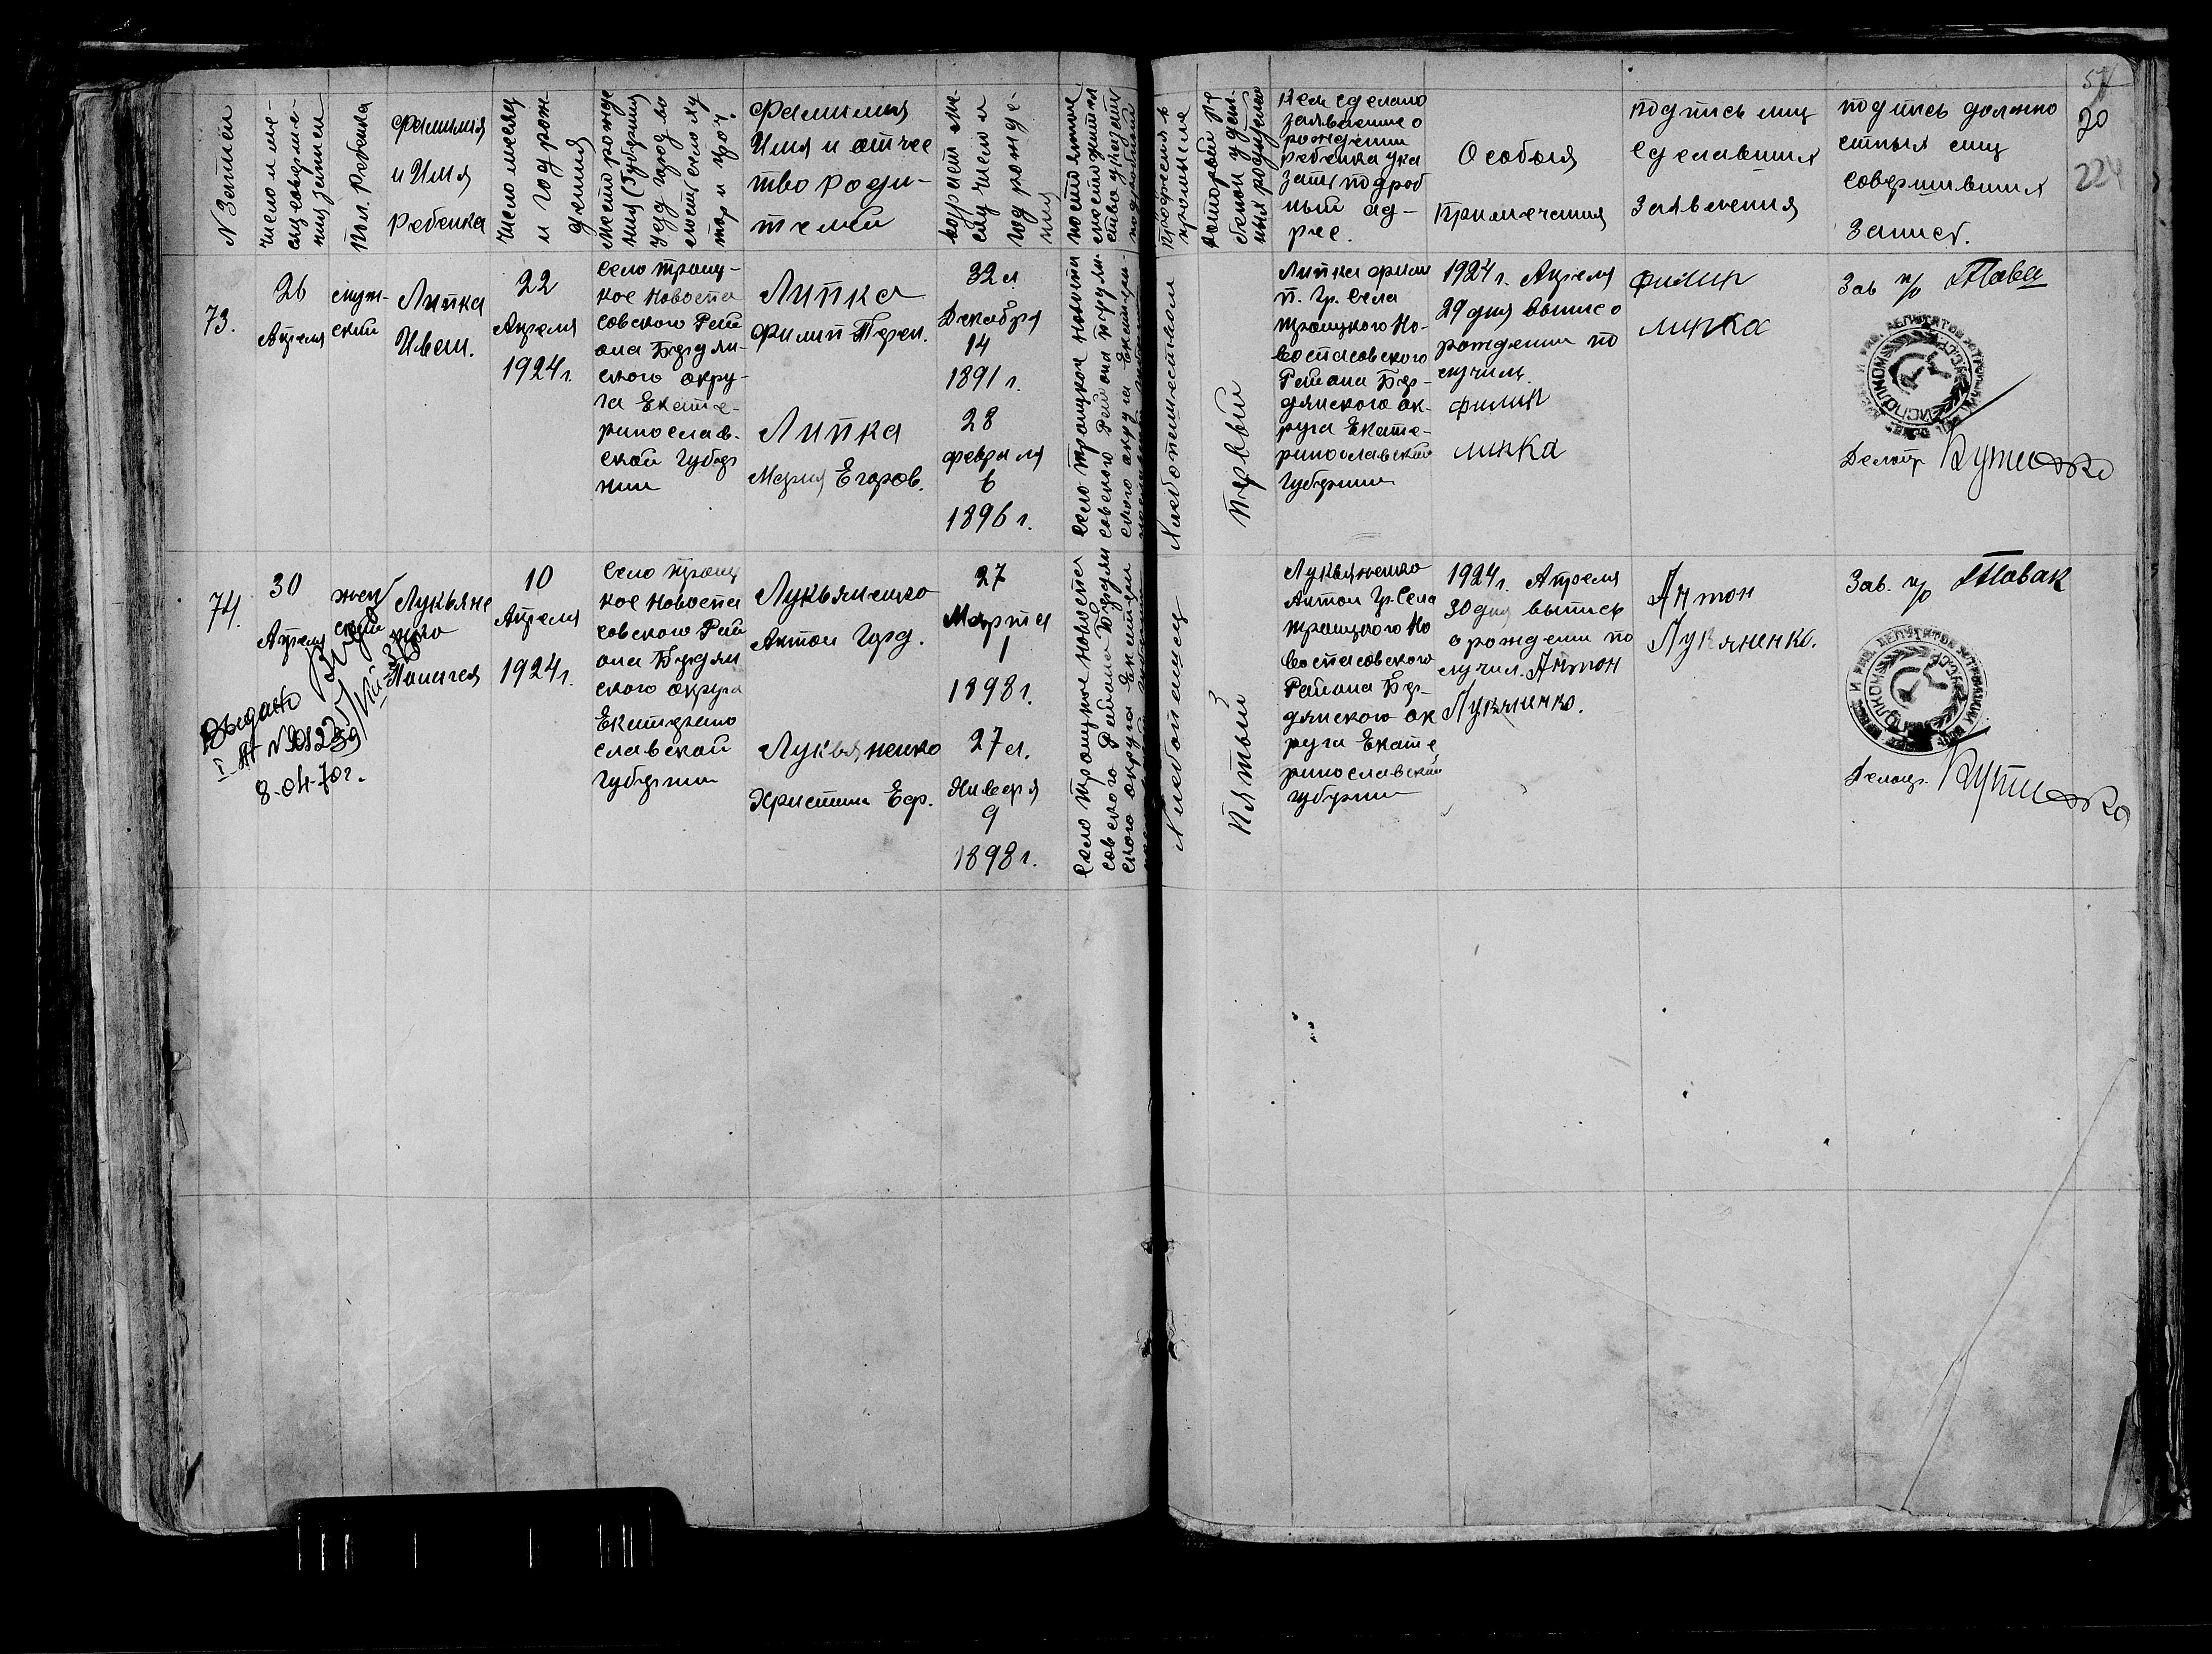 N Записи
число и ме-
сяц соверше-
ния записи
Пол. Ребенка
Фамилия
и Имя
Ребенка
Число месяц
и год рож-
дения
Место рожде
ния (Губерния
уезд город во
лость село ху
тор и проч.
Фамилия
Имя и отчес
тво роди-
телей
возраст ме-
сяц число и
год рожде-
ния
постоянное
местожитель
ство указать
подробный
Профессия и
промысел
который ре
бенок у дан-
ных родителей
Кем сделано
заявление о
рождении
ребенка ука
зать подроб
ный ад-
рес.
Особыя
Примечания
подпись лиц
сделавших
Заявления
подпись должно
стных лиц
совершивших
Запись.
57
20
224
73.
26
Апреля
муж-
ский
Липка
Иван.
22
Апреля
1924г.
село Троиц-
кое Новоспа
совского Рай
она Бердян-
ского окру-
га Екате-
ринослав-
ской Губер
нии
Липка
Филип Терен.
Липка
Мария Егоров.
32 л.
Декабря
14
1891 г.
28
февраля
6
1896 г.
село Троицкое Новоспа
совского Района Бердян-
ского округа Екатери-
Хлебопашеством
Первый
Липка Филип
п. Гр. Села
Троицкого Но-
воспасовского
Района Бер-
дянского ок-
руга Екате-
ринославский
Губернии
1924 г. Апреля
29 дня выпис о
рождении по
лучил
филип
липка
Филип
липка
Зав п/о
ИСПОЛКОМ
Делопр.
74.
30
Апреля
жен
ский
Лукьяне
нко
Палагея
10
Апреля
1924г.
село Троиц
кое Новоспа
совского Рай
она Бердян
ского округа
Екатерино
славской
Губернии
Лукьяненко
Антон Горд.
Лукьяненко
Христина Еф.
27
Марта
1
1898г.
27 л.
Января
9
1898 г.
село Троицкое Новоспа
совского Района Бердян
ского округа Екатери
Хлебопашец
Пятый
Лукьяненко
Антон Гр. Села
Троицкого Но
воспасовского
Района Бер-
дянского ок
руга Екате
ринославский
Губернии
1924г. Апреля
30 дня выпись
о рождении по
лучил. Антон
Лукяненко.
Антон
Лукяненко.
Зав. п/о
ИСПОЛКОМ
Делопр.
Выдано
8-04-70г.